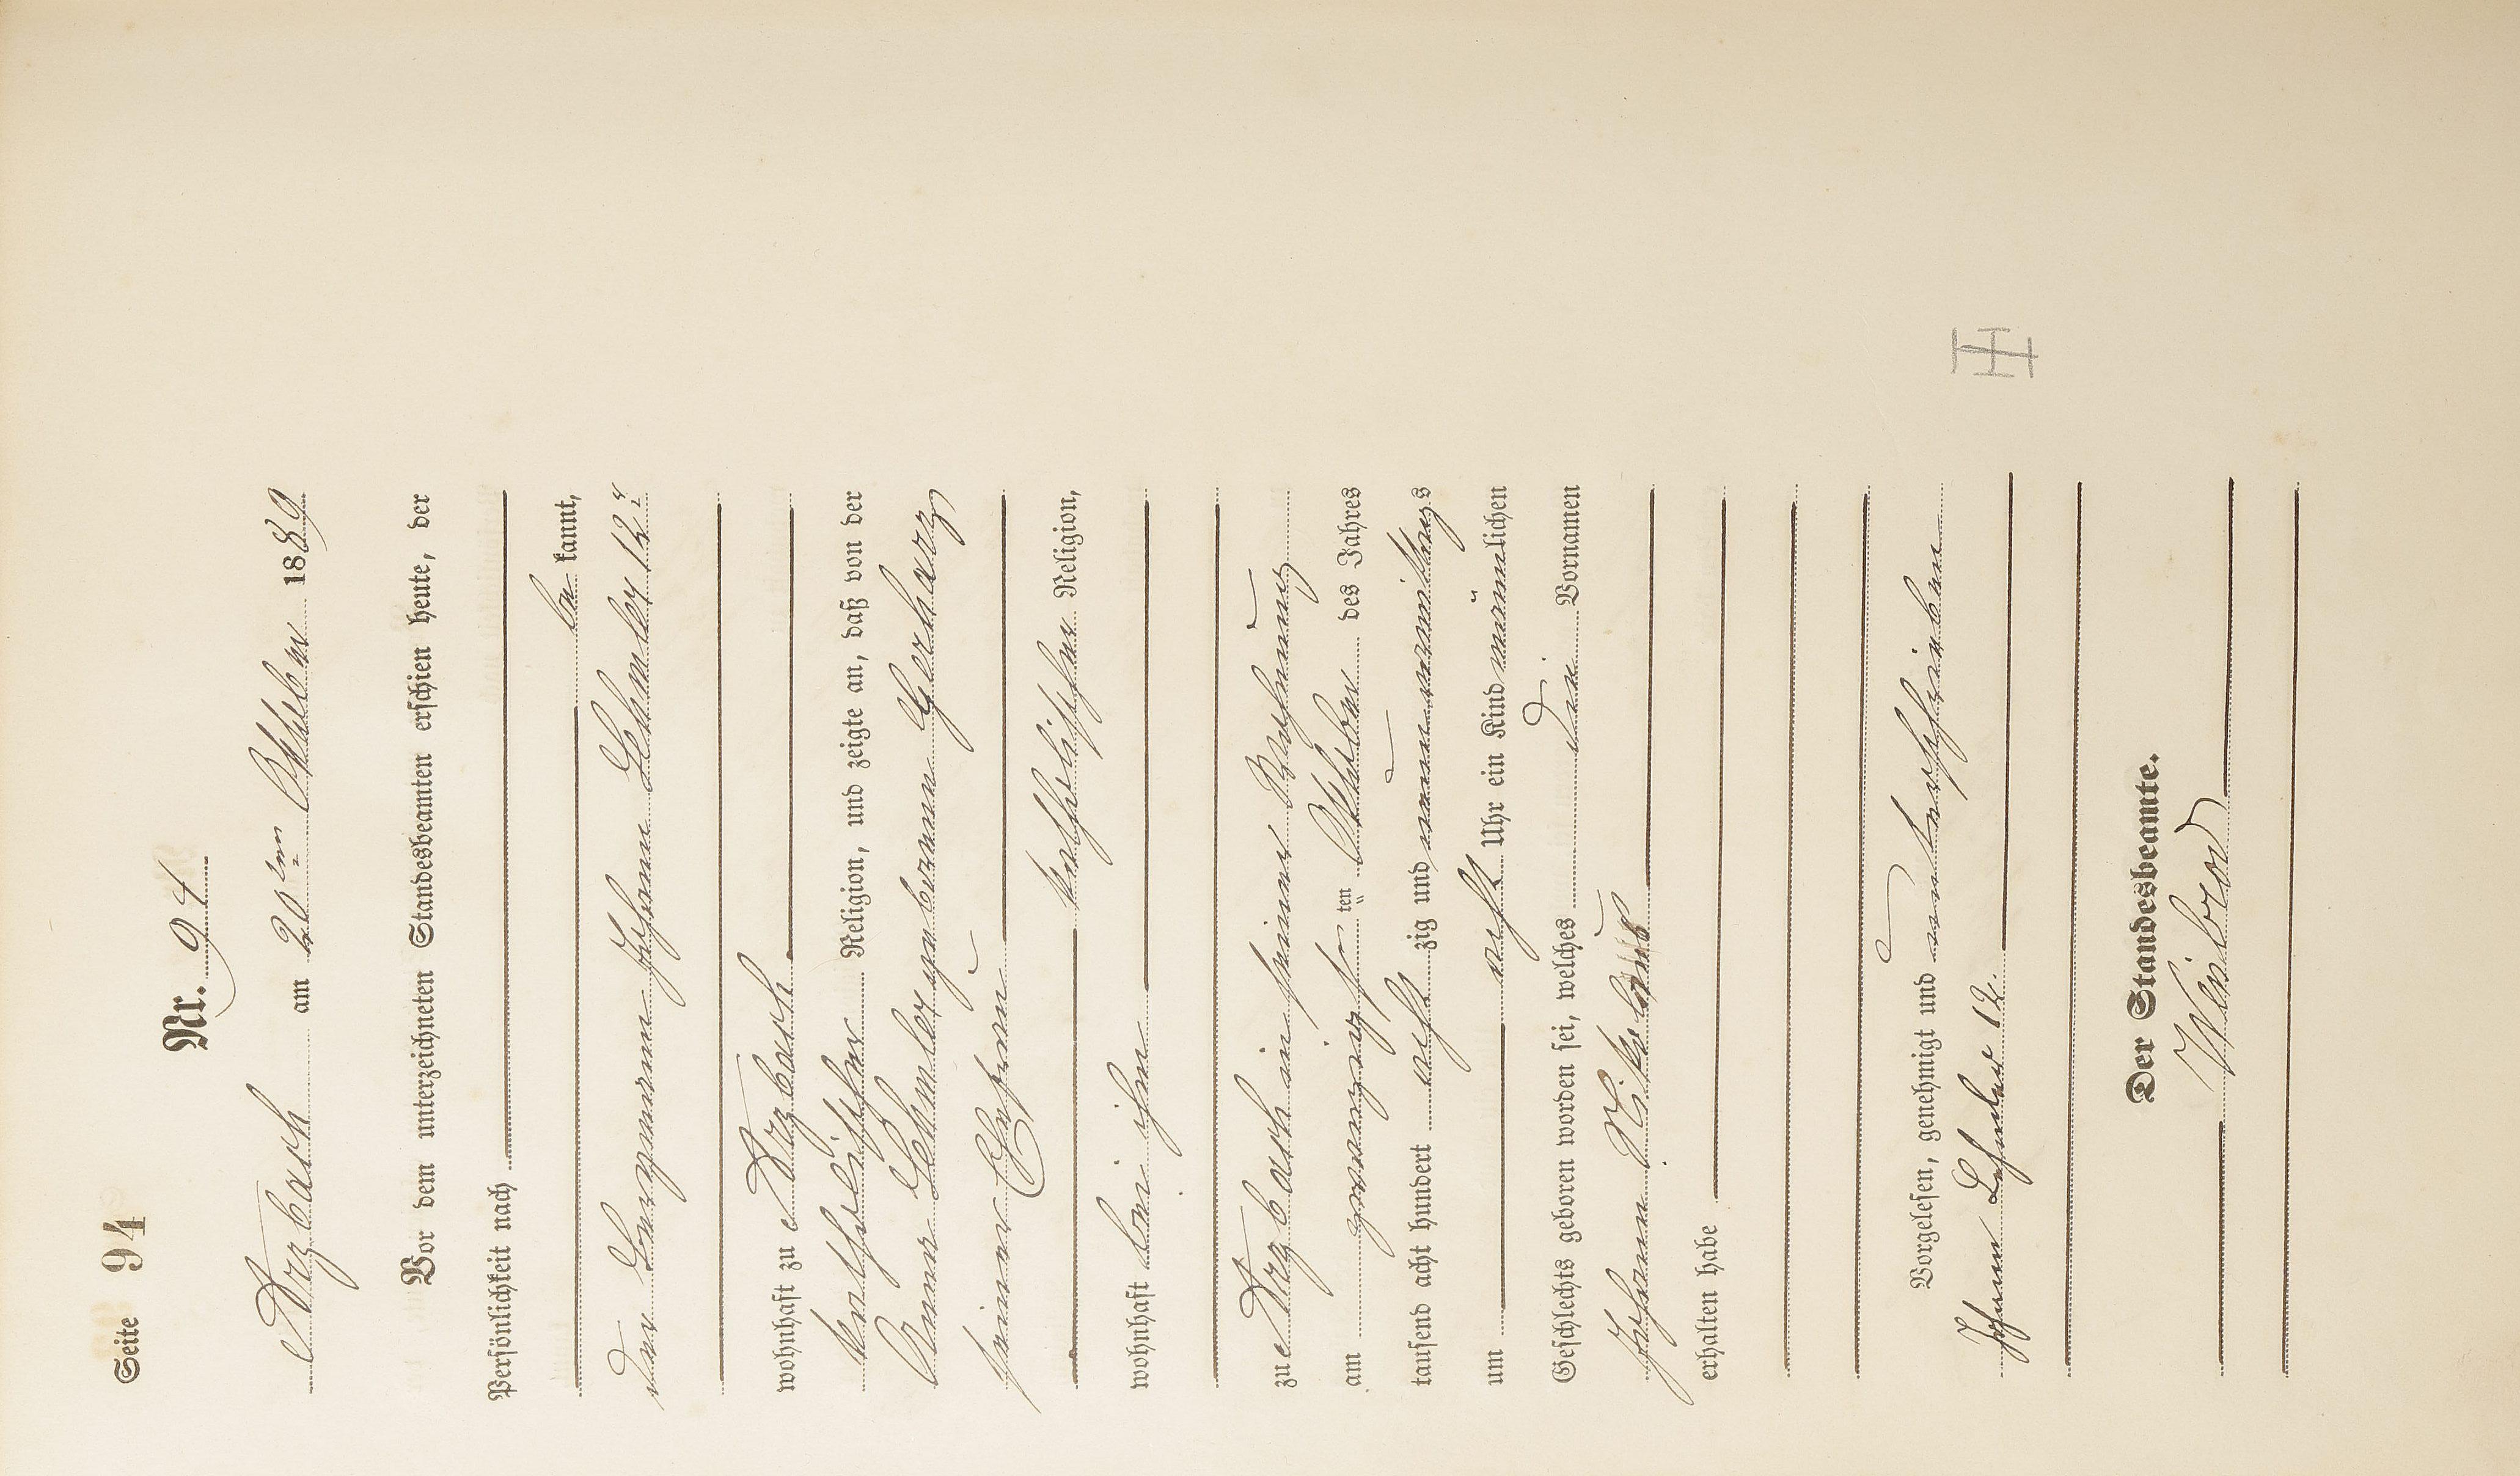 Seite 94
Nr. 94
Arzbach am 20ten Oktober 1889
Vor dem unterzeichneten Standesbeamten erschien heute, der
Persönlichkeit nach
be kannt,
der Bergmann Johann Lehmler 12r
wohnhaft zu Arzbach
katholischer Religion, und zeigte an, daß von der
Anna Lehmler geborenen Gerharz,
seiner Ehefrau
katholischer Religion,
wohnhaft bei ihm
zu Arzbach in seiner Wohnung
am zwanzigsten Oktober des Jahres
tausend acht hundert acht zig und neun vormittags
um acht Uhr ein Kind männlichen
Geschlechts geboren worden sei, welches die Vornamen
Johann Nikolaus
erhalten habe
Vorgelesen, genehmigt und unterschrieben
Johann Lehmler 12.
Der Standesbeamte.
Weisbrod
H